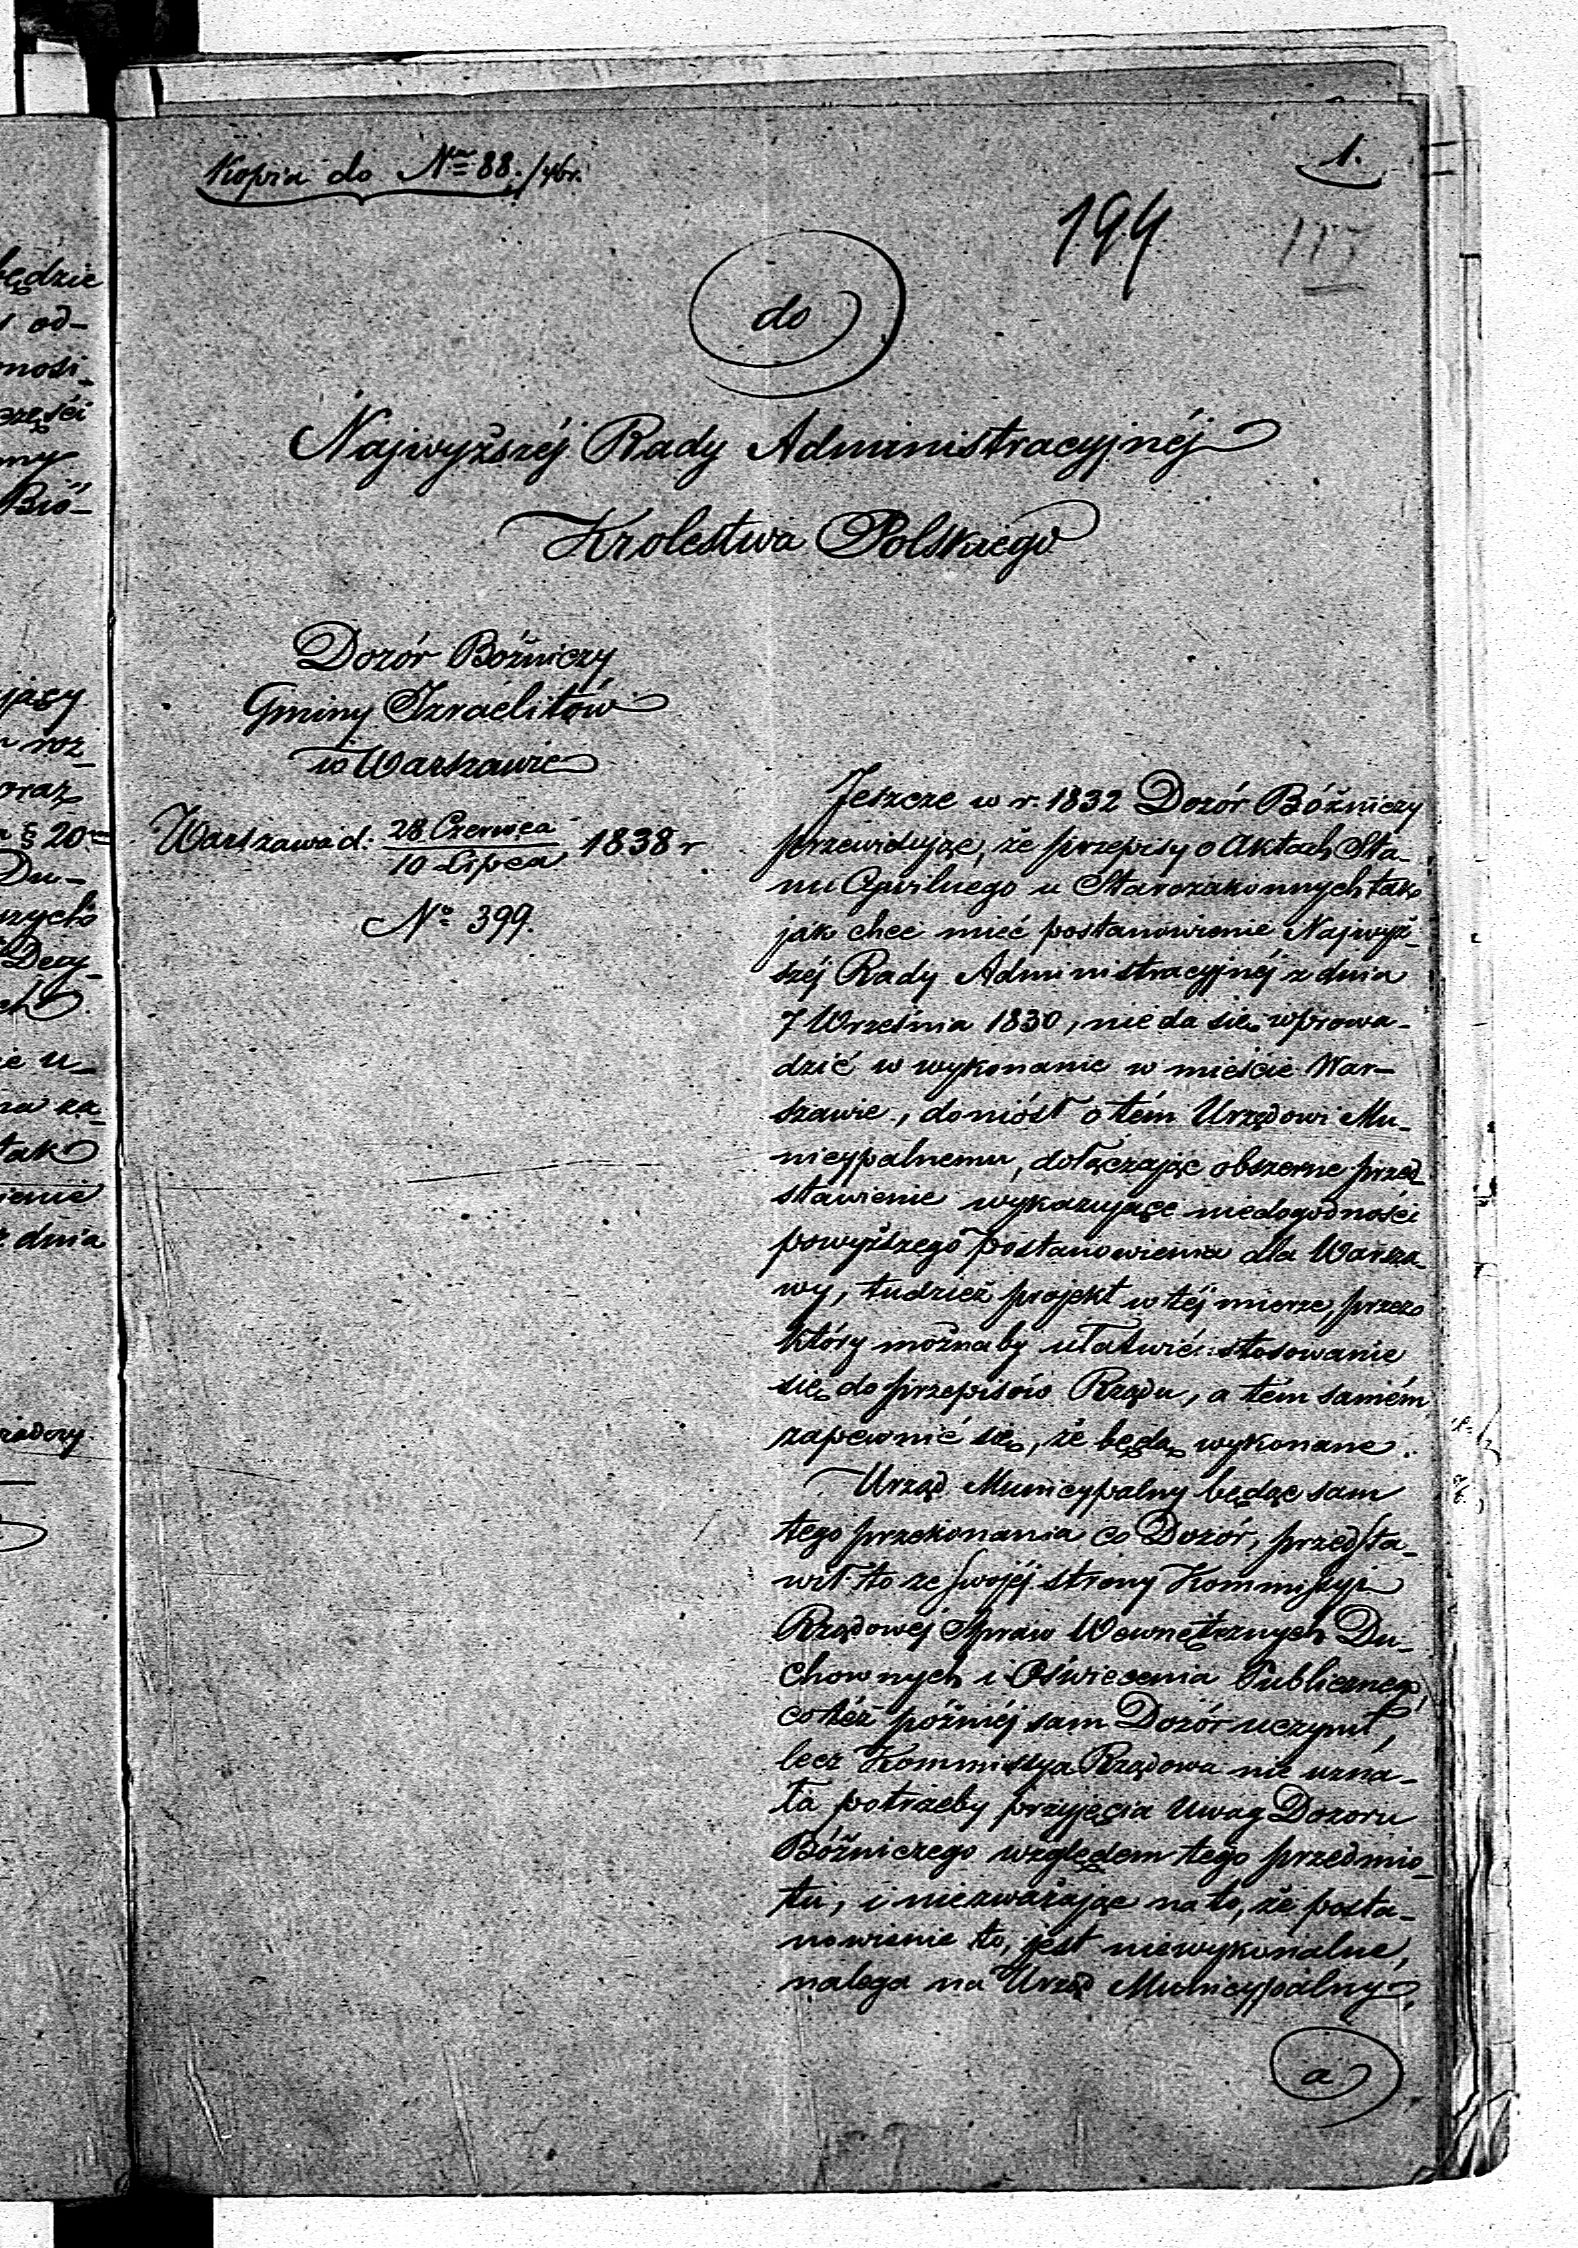 Kopia do Nru 88./46r.
1.
194
117
do
Najwyższéj Rady Administracyjnéj
Krolestwa Polskiego
Dozór Bóżniczy
Gminy Izraélitów
w Warszawie
Warszawa d: 28 Czerwca / 10 Lipca 1838 r
No 399.
Jeszcze w r. 1832 Dozór Bóżniczy
przewidując, że przepisy o Aktach Sta-
nu Cywilnego u Starozakonnych tak
jak chce mieć postanowienie Najwyż-
széj Rady Administracyjnéj z dnia
7 Września 1830, nie da się wprowa-
dzić w wykonanie w mieście War-
szawie, doniósł o tém Urzędowi Mu-
nicypalnemu, dołączając obszerne przed-
stawienie wykazujące niedogodności
powyższego postanowienia dla Warsza-
wy, tudzież projekt w téj mierze, przez
który możnaby ułatwić stosowanie
się do przepisów Rządu, a tém samém
zapewnić się, że będą wykonane.
Urząd Municypalny będąc sam
tego przekonania co Dozór, przedsta-
wił to ze swojéj strony Kommissyi
Rządowéj Spraw Wewnętrznych Du-
chownych i Oświecenia Publicznego,
co téż późniéj sam Dozór uczynił,
lecz Kommissya Rządowa nie uzna-
ła potrzeby przyjęcia Uwag Dozoru
Bóżniczego względem tego przedmio-
tu, i niezważając na to, że posta-
nowienie to, jest niewykonalne,
nalega na Urząd Municypalny,
a
będzie
od-
nosi-
części
Bió-
oraz
§ 20
Du-
Decy-
ie u-
na za-
tak
ienie
z dnia